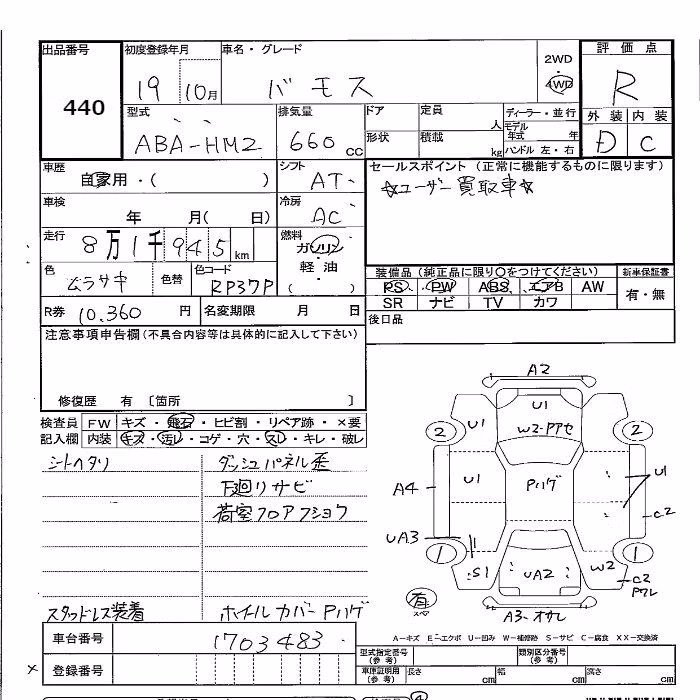 出品番号
440
初度登録年月
19 10月
車名・グレード
バモス
2WD
4WD
評価点
R
外装 内装
D C
型式
ABA-HM2
排気量
660 cc
ドア
形状
定員
人
積載
kg
ディーラー・並行
モデル年式 年
ハンドル 左・右
車歴
自家用・( )
シフト
AT
セールスポイント (正常に機能するものに限ります)
☆ユーザー買取車☆
車検
年 月( 日)
冷房
AC
走行
8万1千945km
燃料
ガソリン・軽・油
( )
色
ムラサキ
色替
色コード
RP37P
装備品 (純正品に限り○をつけてください)
PS PW ABS エアB AW
SR ナビ TV カワ
新車保証書
有・無
R券 10,360 円
名変期限 月 日
後日品
注意事項申告欄(不具合内容等は具体的に記入して下さい)
修復歴 有 〔箇所 〕
検査員記入欄
FW キズ・飛石・ヒビ割・リペア跡・×要
内装 キズ・汚レ・コゲ・穴・スレ・キレ・破レ
シートヘタリ
ダッシュパネル歪
下廻りサビ
荷室フロアプショウ
スタッドレス装着
ホイールカバーPハゲ
A2
U1
W2-Pアセ
U1
2
2
U1
Pハゲ
U1
A4
C2
UA3
1
1
S1
UA2
W2
C2
Pワレ
有
スペ
A3-オサレ
A-キズ E-エクボ U-凹み W-補修跡 S-サビ C-腐食 XX-交換済
車台番号
1703483
× 登録番号
型式指定番号(参考)
類別区分番号(参考)
車庫証明用(参考)
長さ cm
幅 cm
高さ cm